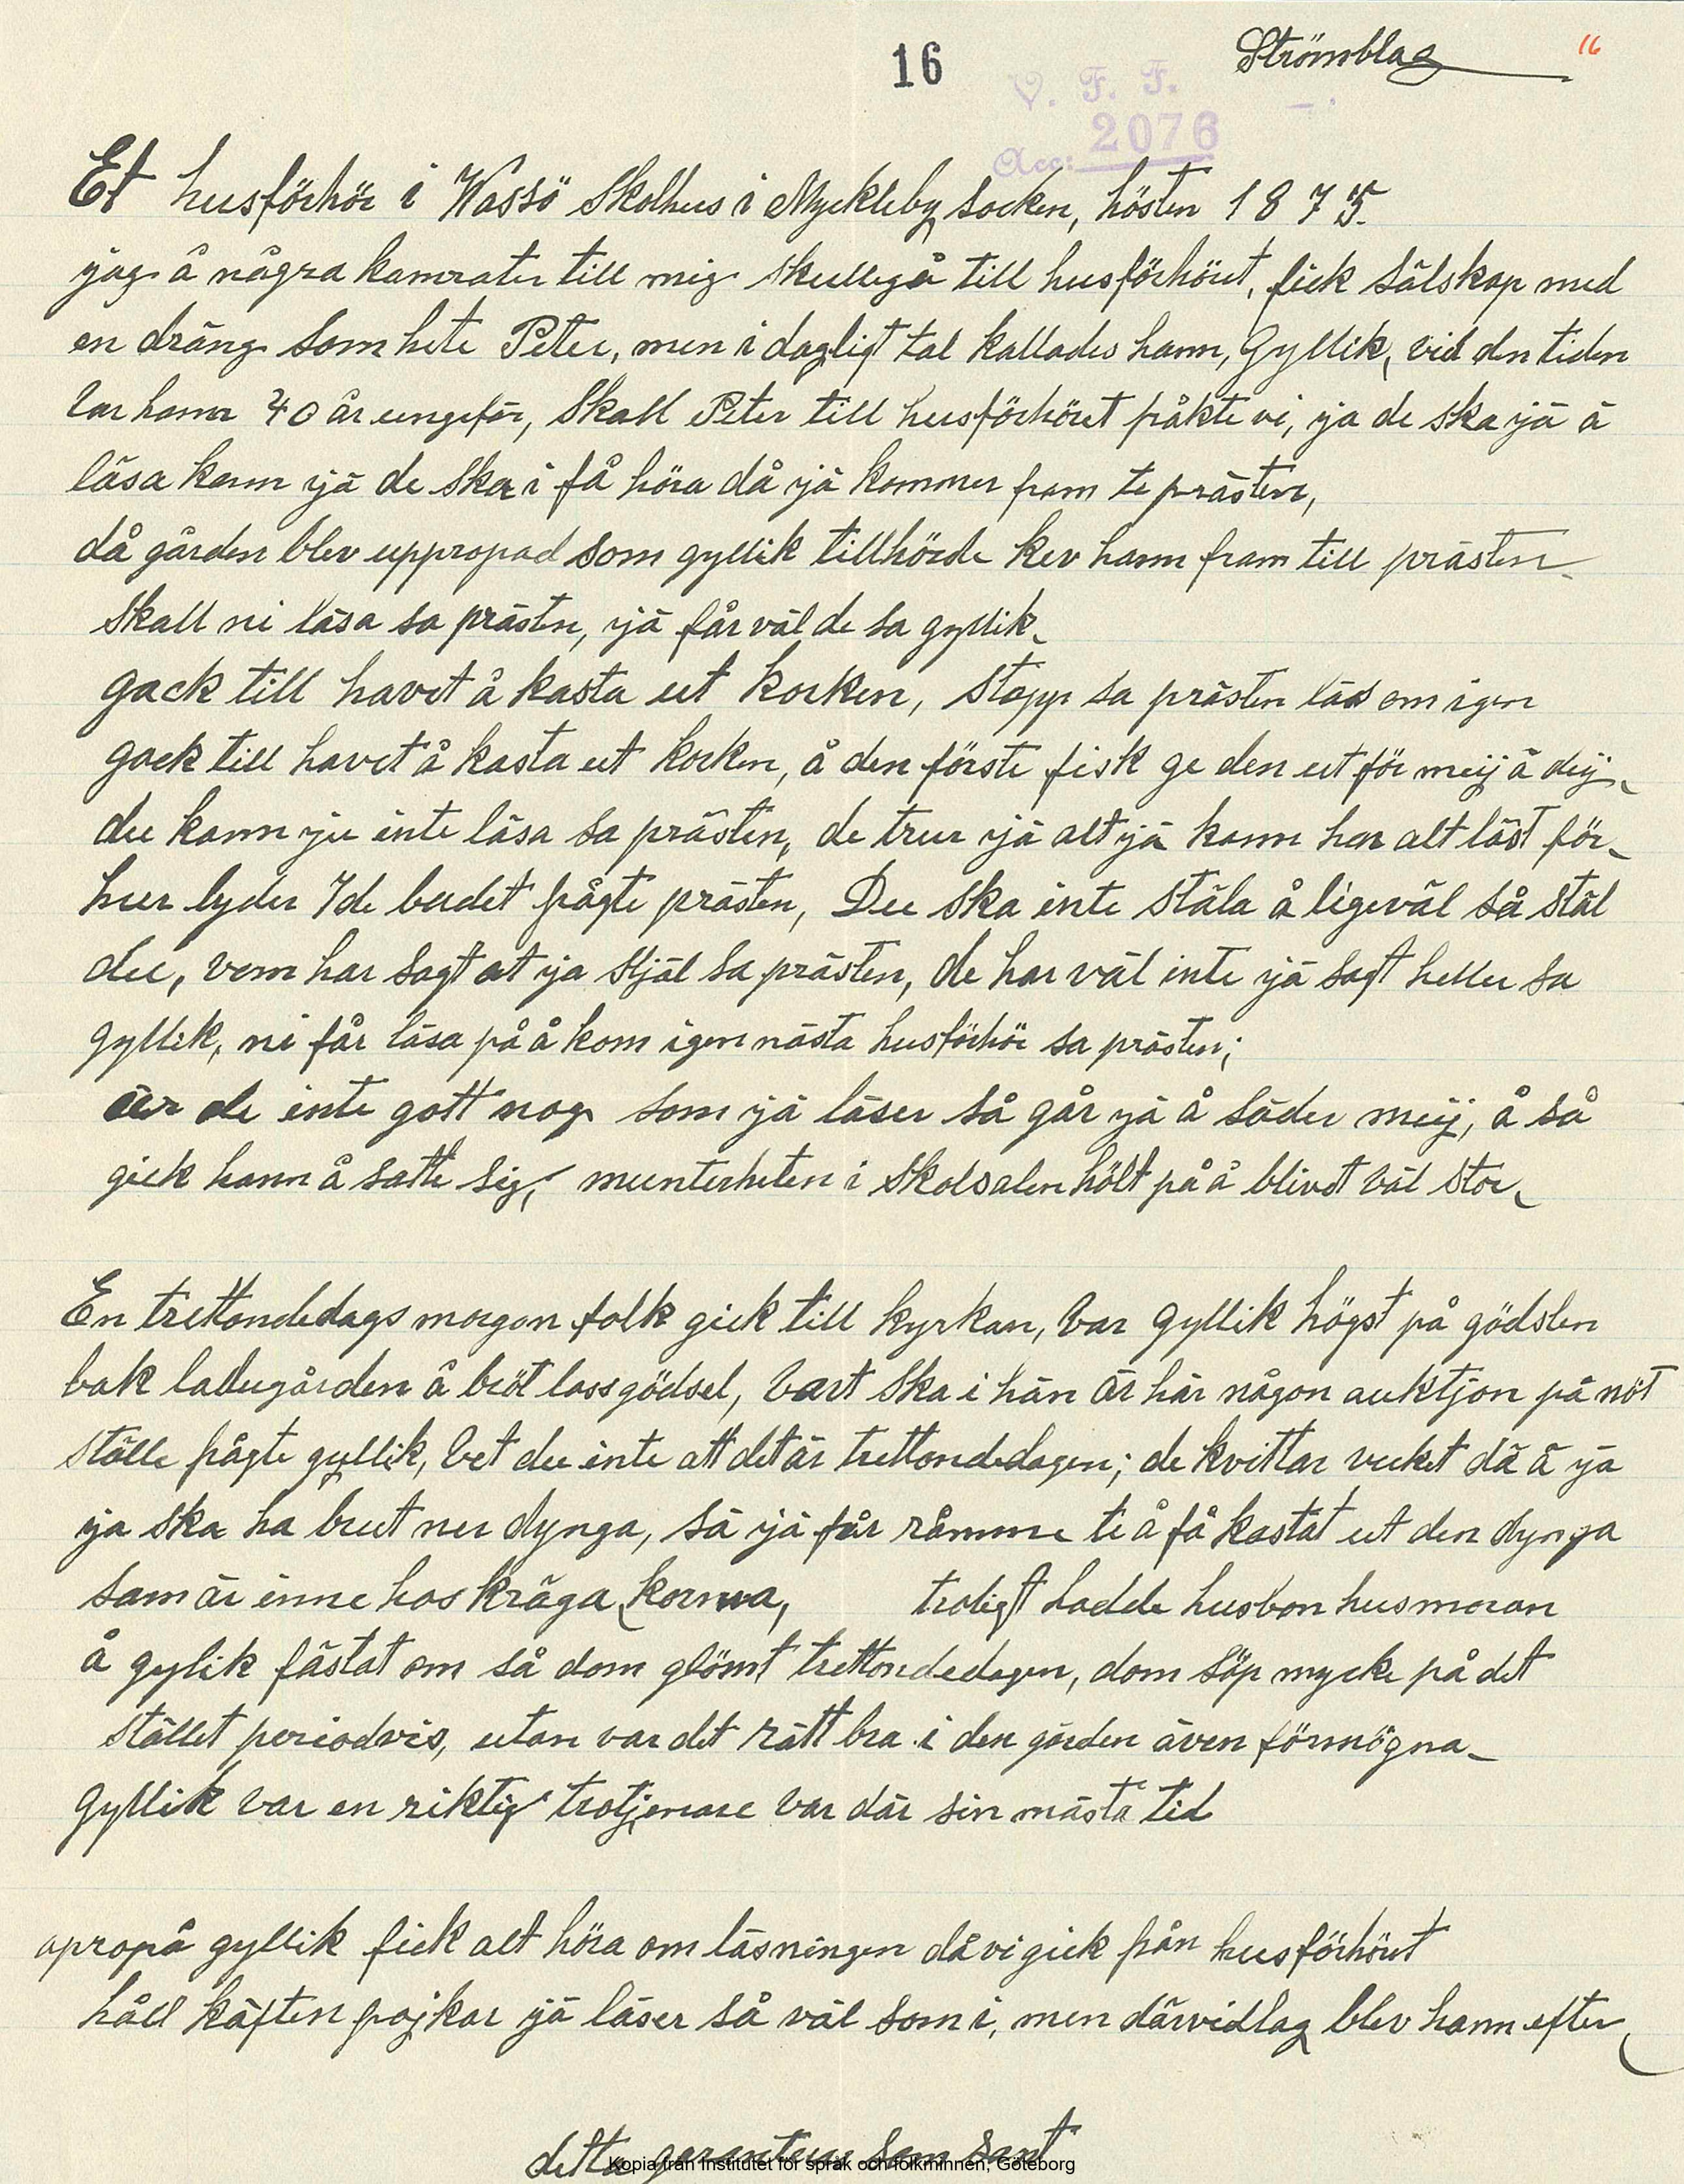 16 Strömblad 16
V. F. F.
2076
Acc:
Et husförhör i Wassö Skolhus i Myckleby socken, hösten 1875.
jag å några kamrater till mig skullegå till husförhöret, fick sälskap med
en dräng som hete Peter, men i dagligt tal kallades hann, Gyllik, vid den tiden
var hann 40 år ungefär, Skall Peter till husförhöret fråkte vi, ja de ska jä å
läsa kann jä de ska i få höra då jä kommer fram te prästen,
då gården blev uppropad som gyllik tillhörde kev hann fram till prästen
Skall ni läsa sa prästen, jä får väl de sa gyllik,
gack till havet å kasta ut kocken, stopp sa prästen läs om igen
gack till havet å kasta ut kocken, å den förste fisk ge den ut för meij å deij,
du kann ju inte läsa sa prästen, de trur jä alt jä kann har alt läst för,
hur lyder 7de budet frågte prästen, Du ska inte stäla å ligeväl så stäl
du, vem har sagt at ja stjäl sa prästen, de har väl inte jä sagt heller sa
gyllik, ni får läsa på å kom igen nästa husförhör sa prästen;
är de inte gott nog som jä läser så går jä å säder meij, å så
gick hann å satte sig, munterheten i skolsalen hölt på å blivet väl stor,
En trettondedags morgon folk gick till kyrkan, var gyllik högst på gödslen
bak ladugården å bröt lossgödsel, Vart ska i hän är här någon auktjon på nöt
ställe frågte gyllik, Vet du inte att det är trettondedagen; de kvittar vicket då å ja
ja ska ha brut ner dynga, så jä får råmme te å få kastat ut den dynga
som är inne hos kräga korna, troligt hadde husbon husmoran
å gylik fästat om så dom glömt trettondedagen, dom söp mycke på det
stället periodvis, utan var det rätt bra i den gården även förmögna
Gyllik var en riktig trotjenare var där sin mästa tid
apropå gyllik fick alt höra om läsningen då vi gick från husförhöret
håll käften pojkar jä läser så väl som i, men därvidlag blev hann efter
detta garanteras som sant
Kopia från Institutet för språk och folkminnen, Göteborg